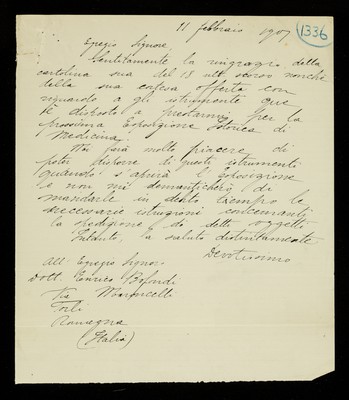 11 febbraio 1907
1336
Egregio Signore,
Sentitamente la ringrazio della
cartolina sua del 18 ult. scorso nonchè
della sua cortese offerta con
riguardo a gli istrumente que
è disposto a prestarmi per la
prossima Esposizione Storica di
Medicina.
Mi farà molto piacere di
poter disporre di questi istrumenti
quando s'aprirà l'Esposizione
e non mi dementicherò di
mandarle in debito tempo le
necessarie istruzioni concernenti
la spedizione di detti oggetti.
Intanto, la saluto distintamente
Devotissimo
All' Egregio Signor
Dott. Enrico
Via Maroncelli
Forlì
Romagna
(Italia)